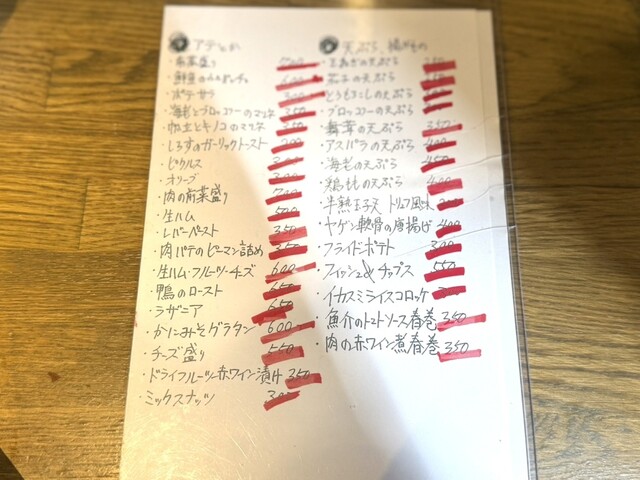 アテとか
前菜盛り
鮮魚のカルパッチョ
・ポテサラ 300
・海老とブロッコリーのマヨネ 350
・帆立とキノコのマヨネ 350
・しらすのガーリックトースト 200
・ピクルス 300
・オリーブ 300
・肉の前菜盛り 700
・生ハム 500
・レバーペースト 350
・肉パテのピーマン詰め 350
・生ハム・フルーツ・チーズ 600
・鴨のロースト 650
・ラザニア 650
・かにみそグラタン 600
・チーズ盛り 550
・ドライフルーツ赤ワイン漬け 350
・ミックスナッツ 300
天ぷら、揚げもの
・玉ねぎの天ぷら
・茄子の天ぷら
・とうもろこしの天ぷら
・ブロッコリーの天ぷら
・舞茸の天ぷら 350
・アスパラの天ぷら 400
・海老の天ぷら 450
・鶏ももの天ぷら 400
・半熟玉子天 トリュフ風味
・ヤゲン軟骨の唐揚げ 400
・フライドポテト 300
・フィッシュ&チップス 550
・イカスミライスコロッケ
・魚介のトマトソース春巻 350
・肉の赤ワイン煮春巻 350